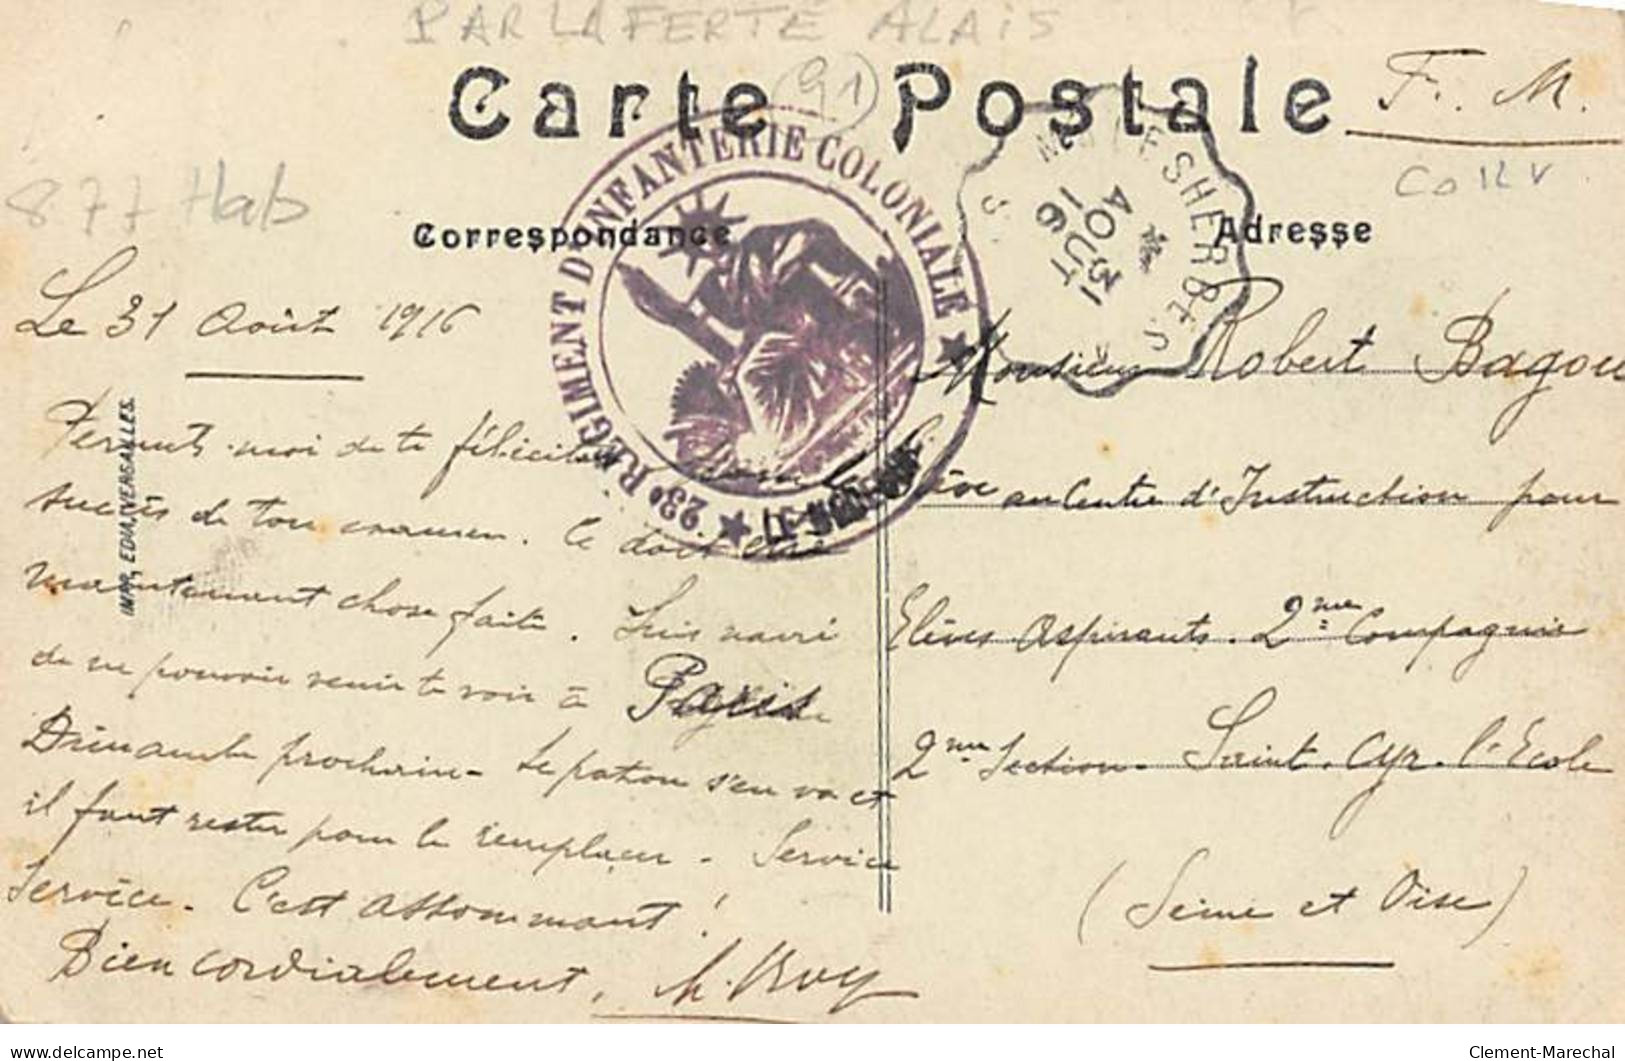 PAR LA FERTE ALAIS
(91)
Carte Postale
F. M.
877 Hab
Correspondance
Adresse
23e RÉGIMENT D'INFANTERIE COLONIALE
31 AOUT 16
Le 31 Août 1916
Permets-moi de te féliciter du
succès de ton examen. Ce doit être
maintenant chose faite. Suis navré
de ne pouvoir venir te voir à Paris
Dimanche prochain - Le patron s'en va et
il faut rester pour le remplacer - Service
Service - C'est assommant !
Bien cordialement,
IMPR. EDIA, VERSAILLES.
Monsieur Robert Bagou
Élève au Centre d'Instruction pour
Elèves Aspirants. 2me Compagnie
2me Section - Saint. Cyr. l'Ecole
(Seine et Oise)
delcampe.net
Clement-Marechal